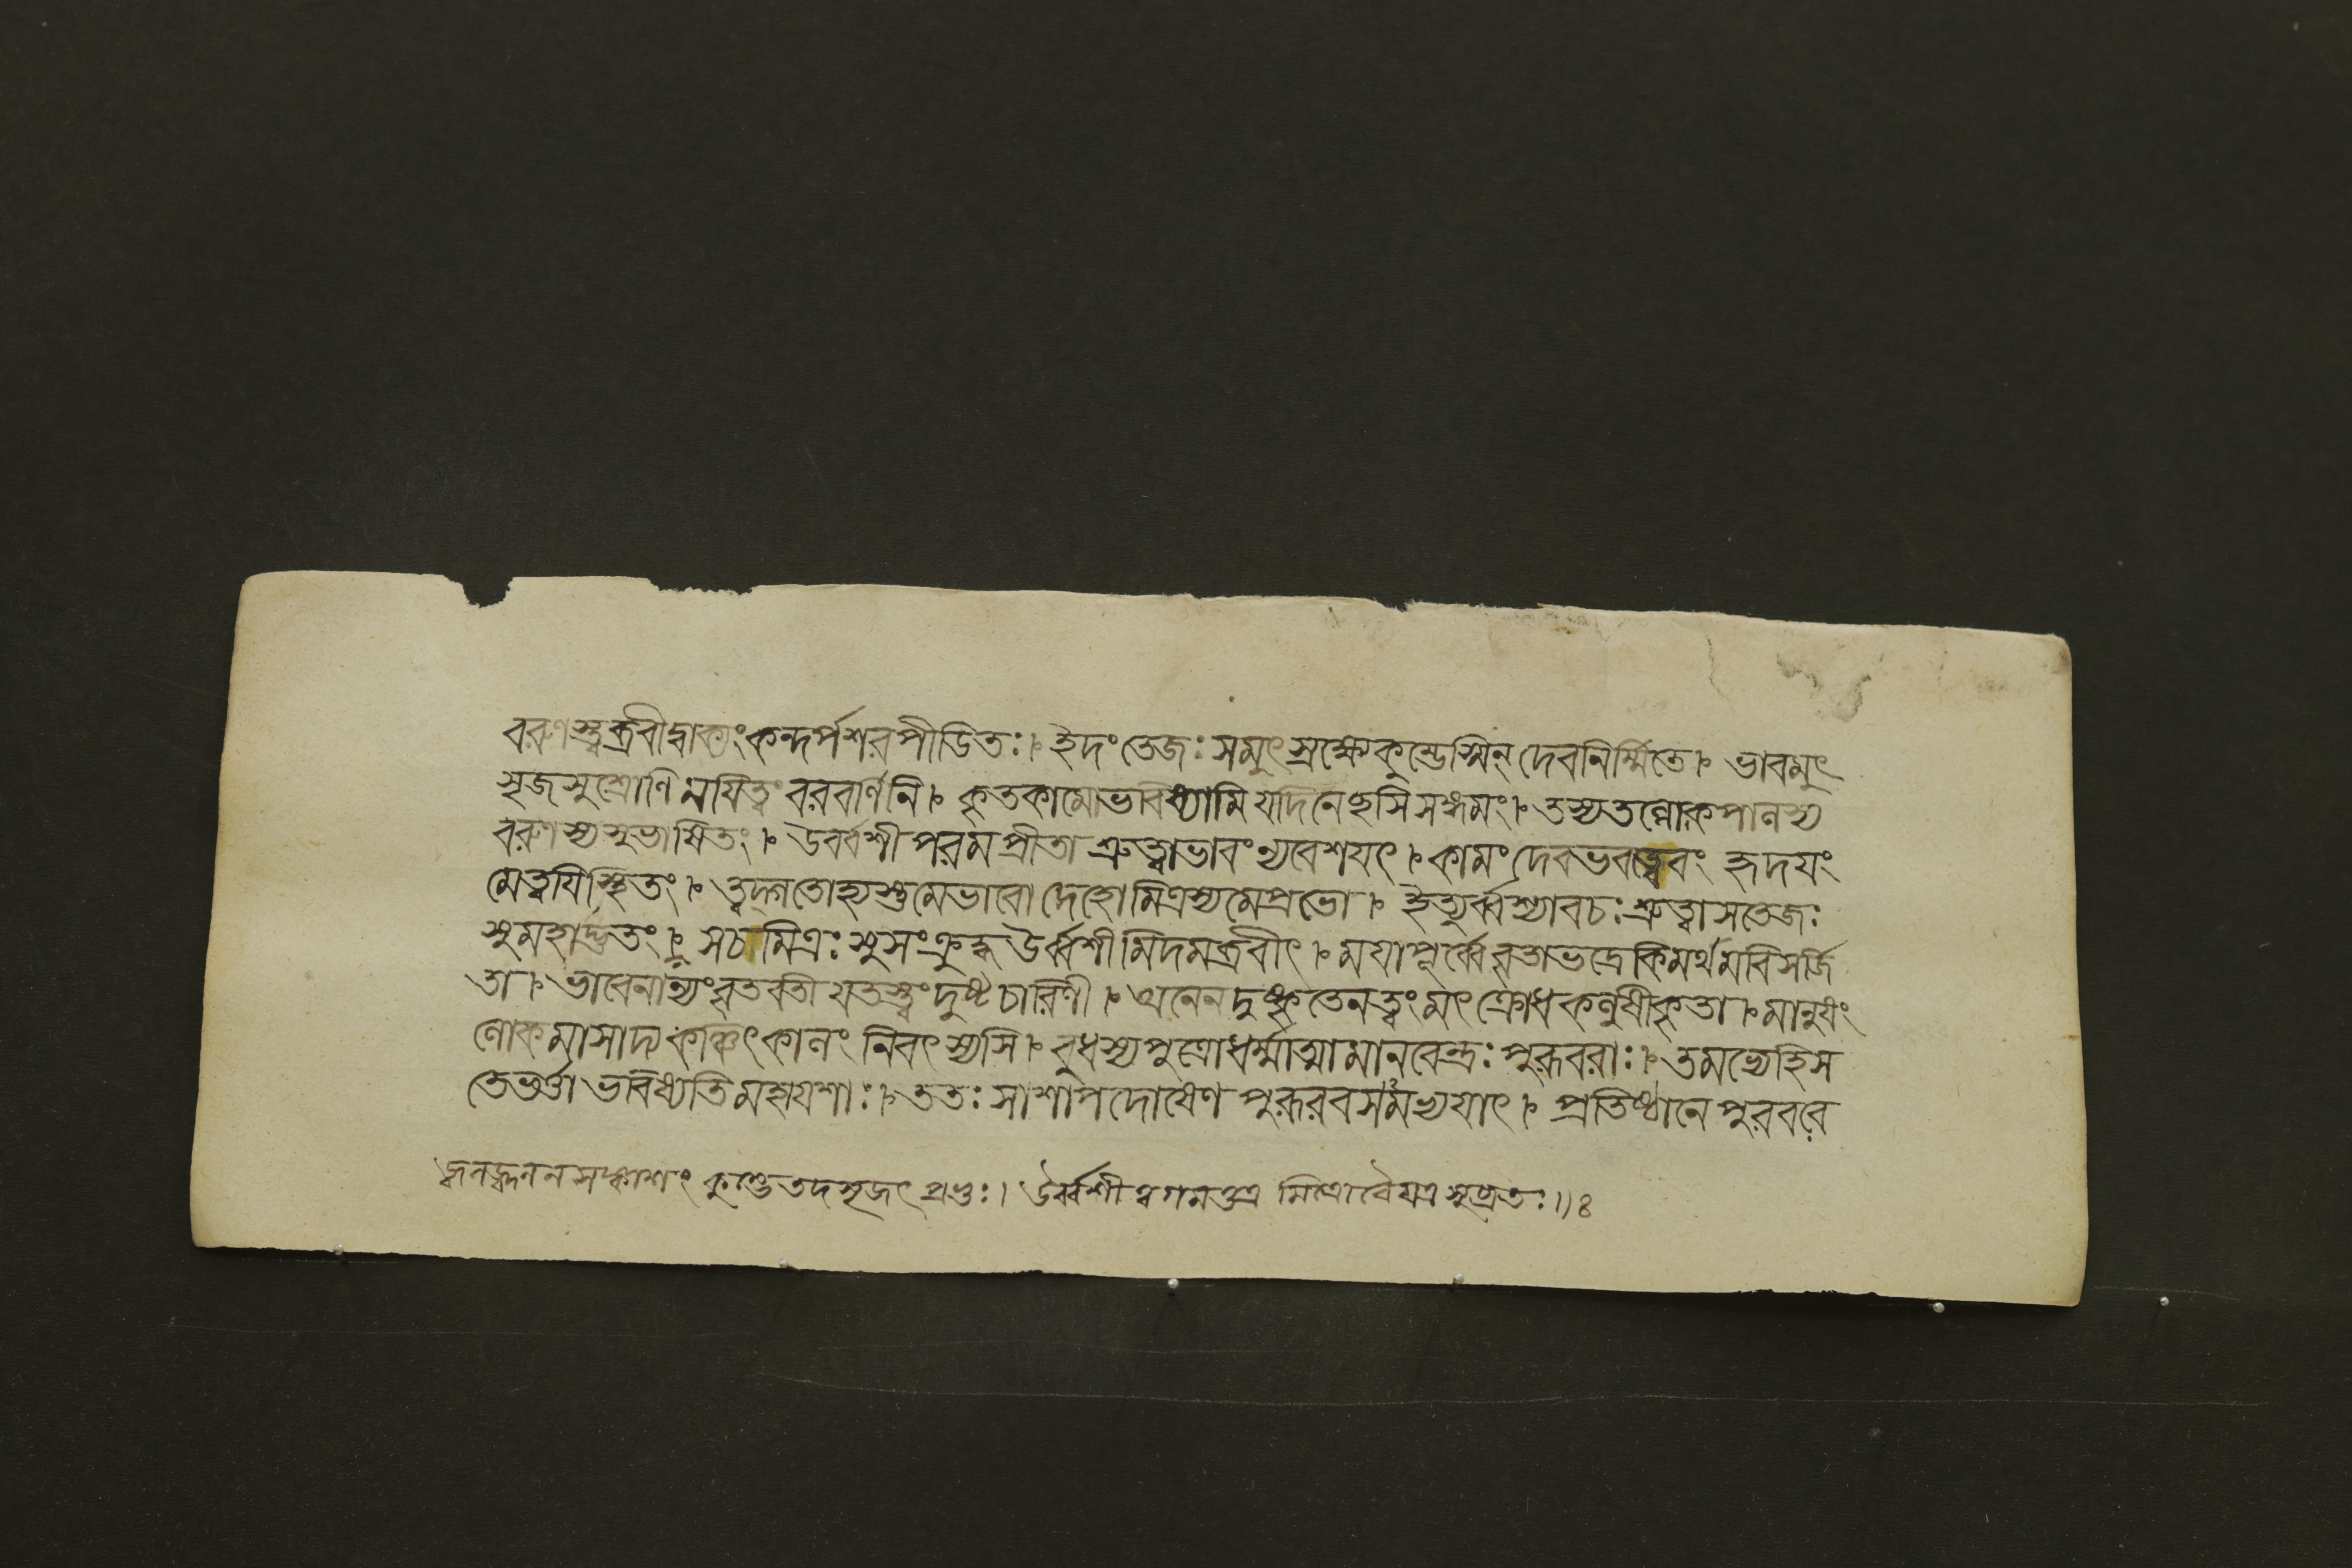 বরুণস্ত্বব্রবীদ্বাক্যং কন্দর্পশরপীডিতঃ। ইদং তেজঃ সমুৎস্রক্ষ্যে কুম্ভেস্মিন্ দেবনির্ম্মিতে। ভাবমুৎ
সৃজ সুশ্রোণি ময়ি ত্বং বরবর্ণিনি। কৃতকামো ভবিষ্যামি যদি নেচ্ছসি সঙ্গমং। তস্য তল্লোকপালস্য
বরুণস্য সুভাষিতং। উর্ব্বশী পরমপ্রীতা শ্রুত্বা ভাবং ন্যবেশয়ৎ। কামং দেব ভবত্বেবং হৃদয়ং
মে ত্বয়ি স্থিতং। ত্বদ্গতো হ্যস্তু মে ভাবো দেহো মিত্রস্য মে প্রভো। ইত্যুর্ব্বশ্যা বচঃ শ্রুত্বা স তেজঃ
সুমহাদ্ভুতং। স চ মিত্রঃ সুসংক্রুদ্ধ উর্ব্বশীমিদমব্রবীৎ। ময়া পূর্ব্বে বৃতা ভদ্রে কিমর্থমবিসর্জি
তা। ভাবেনান্যং বৃতবতী যতস্ত্বং দুষ্টচারিণী। অনেন দুষ্কৃতেন ত্বং মৎক্রোধকলুষীকৃতা। মানুষং
লোকমাসাদ্য কঞ্চিৎকালং নিবৎস্যসি। বুধস্য পুত্রো ধর্ম্মাত্মা মানবেন্দ্রঃ পুরূবরাঃ। তমভ্যেহি স
তে ভর্ত্তা ভবিষ্যতি মহাযশাঃ। ততঃ সা শাপদোষেণ পুরূরবসমভ্যয়াৎ। প্রতিষ্ঠানে পুরবরে
জ্বলজ্জ্বলনসঙ্কাশং কুম্ভে তদসৃজৎ প্রভুঃ। উর্ব্বশী ত্বগমত্তত্র মিত্রো বৈ যত্র সুব্রতঃ॥৪